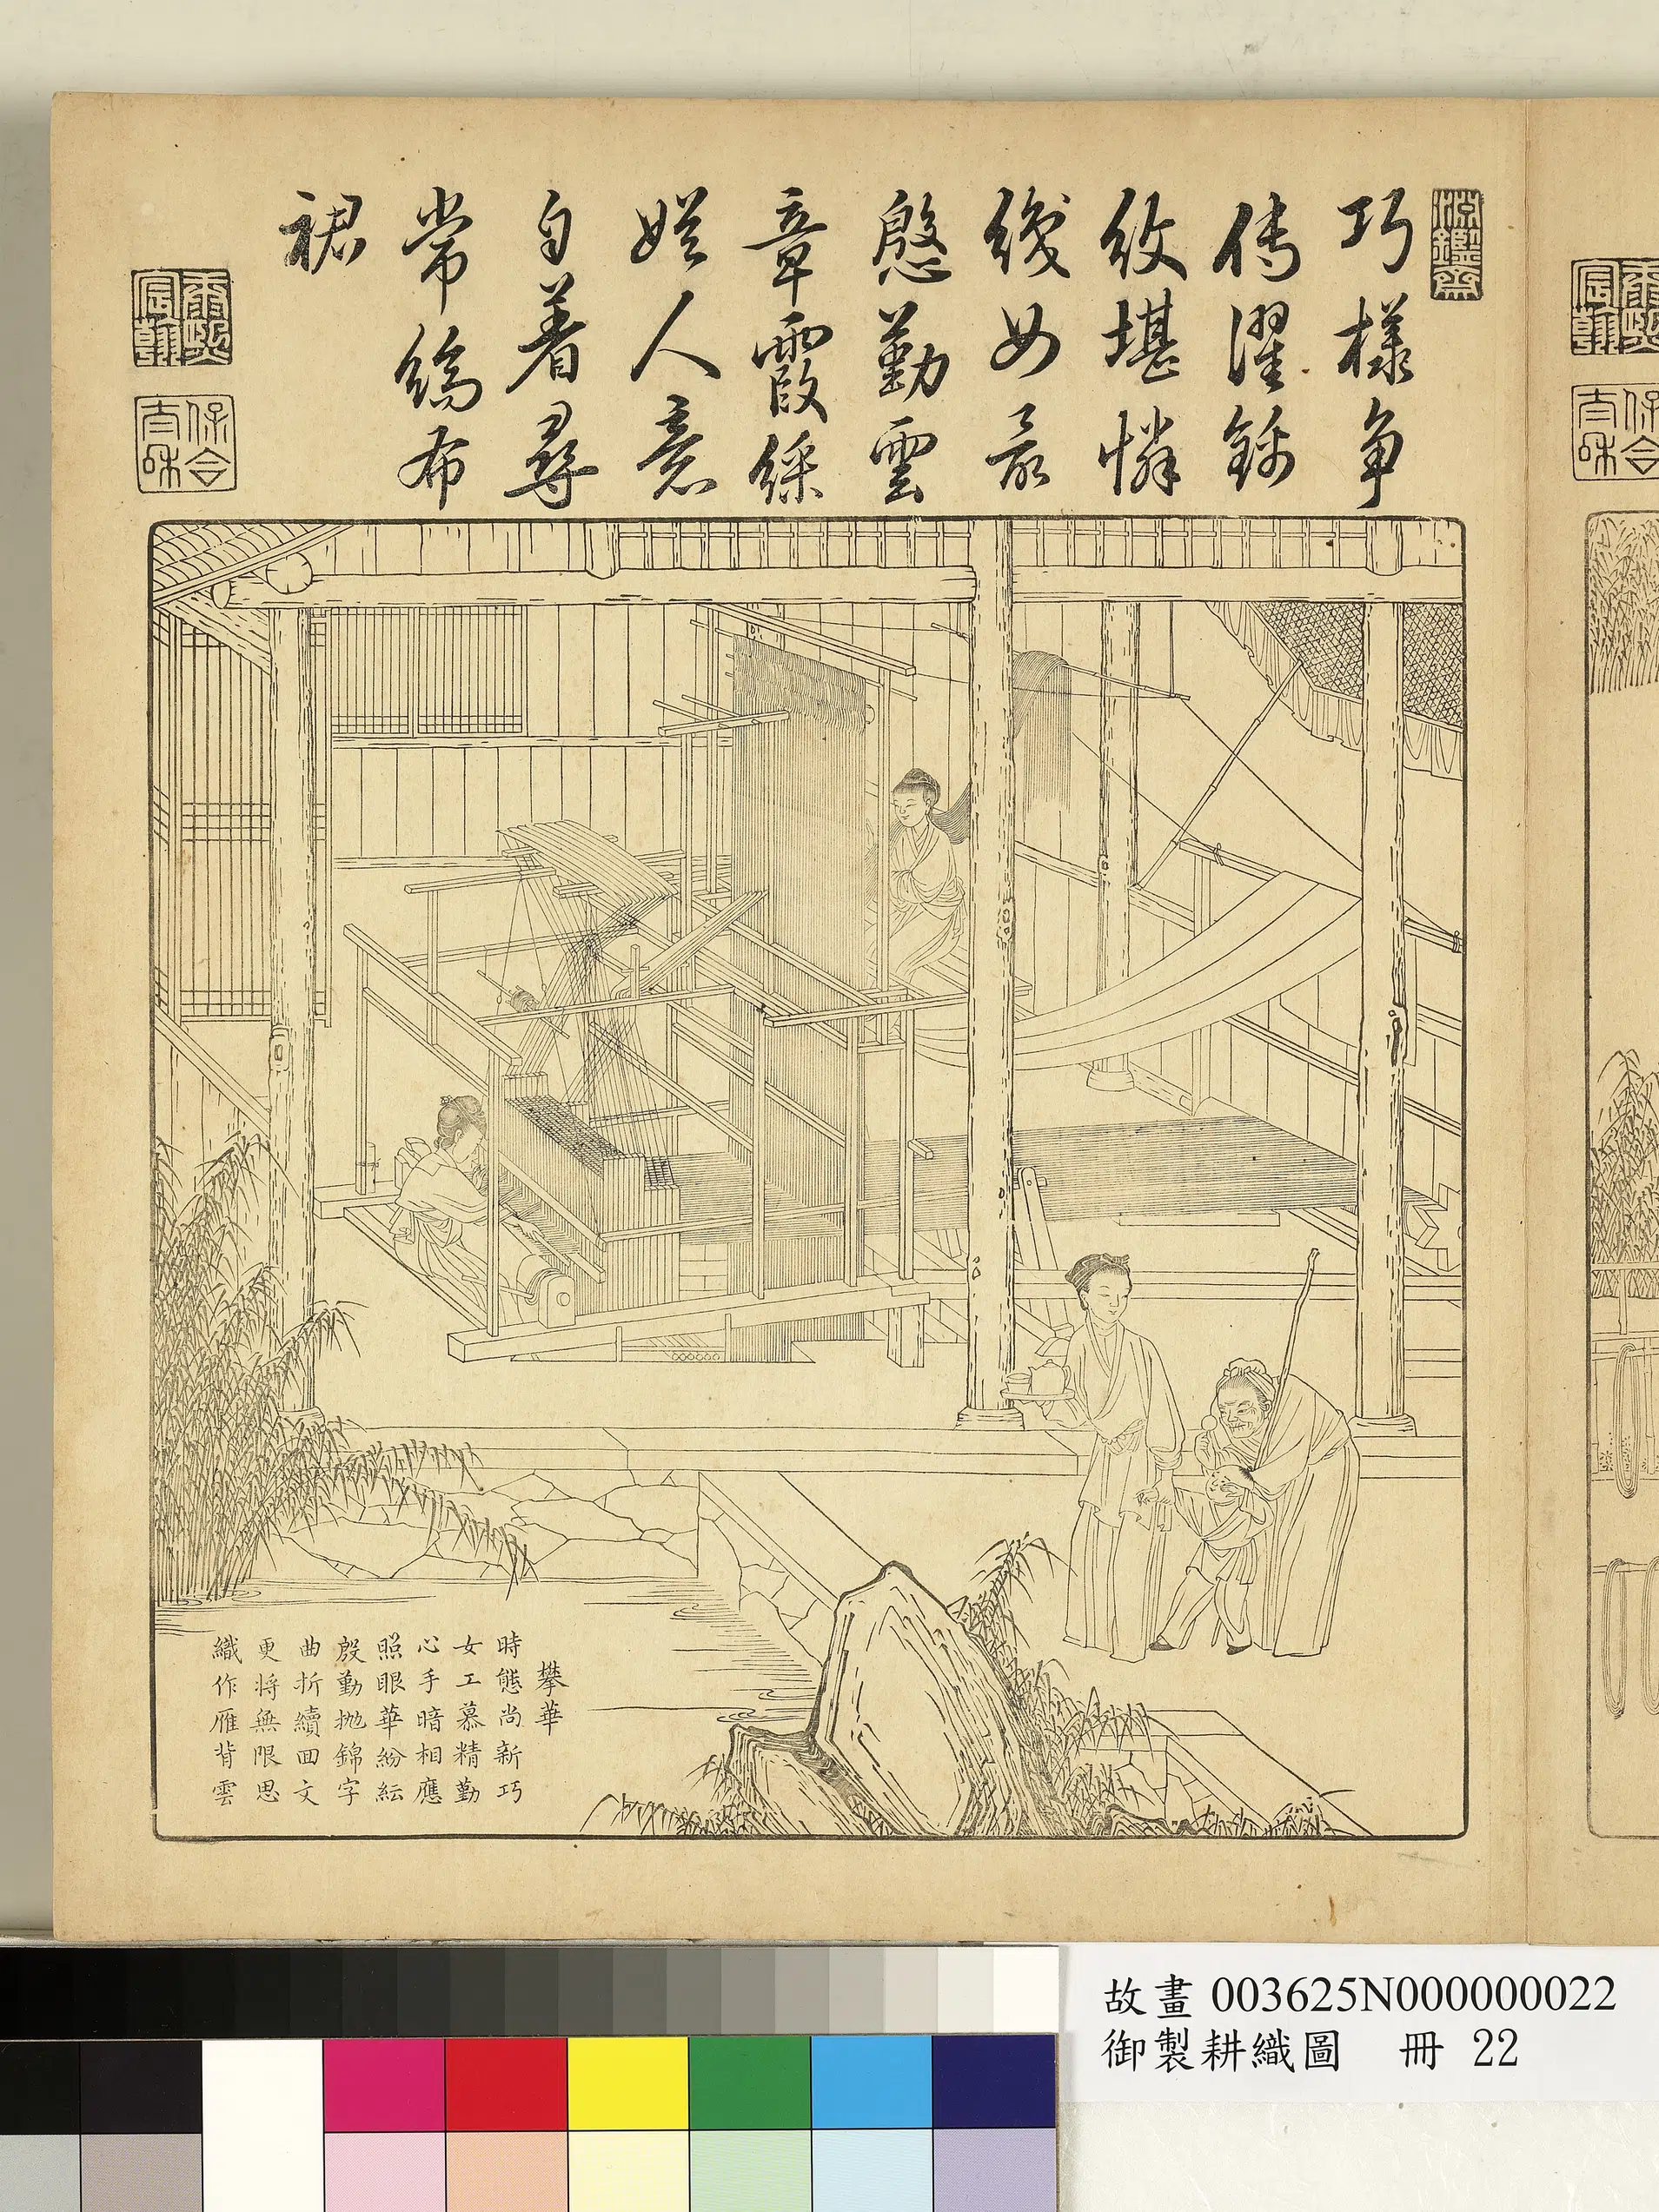 淵鑑齋
巧樣争
傳濯錦
紋堪憐
織女最
慇懃雲
章霞綵
娛人意
自着尋
常縞布
裙
康熙宸翰
保合太和
攀華
時態尚新巧
女工慕精勤
心手暗相應
照眼華紛紜
殷勤拋錦字
曲折續囬文
更將無限思
織作雁背雲
故畫 003625N000000022
御製耕織圖 冊 22